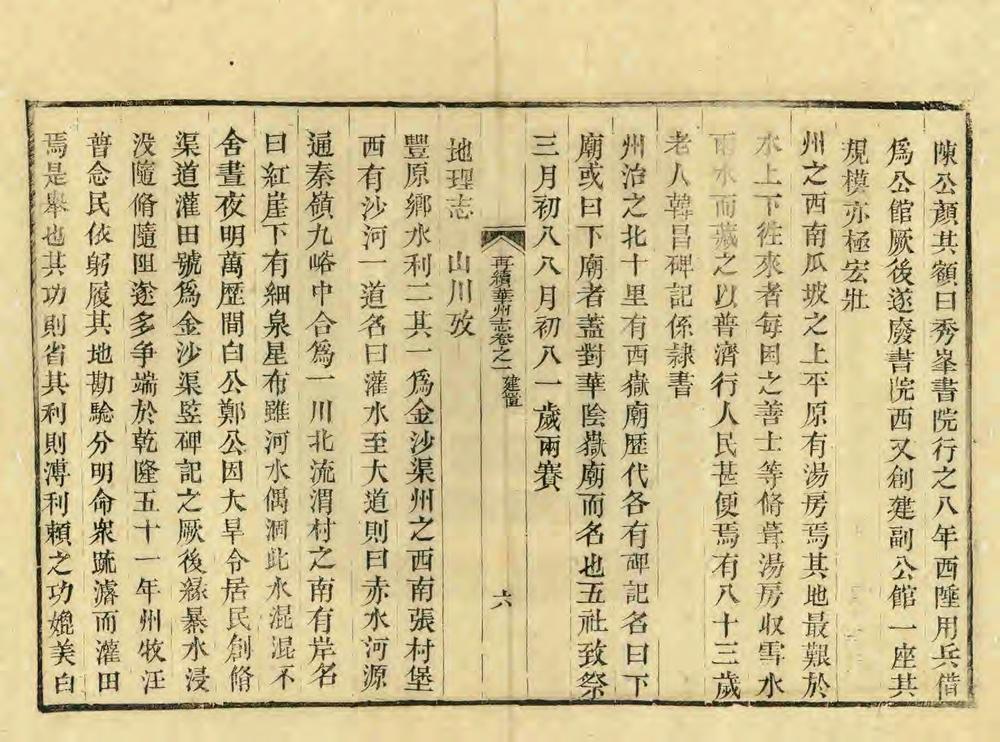 陳公顏其額曰秀峯書院行之八年西陲用兵借
爲公館厥後遂廢書院西又創建副公館一座其
規模亦極宏壯
州之西南瓜坡之上平原有湯房焉其地最艱於
水上下往來者每困之善士等脩葺湯房收雪水
雨水而藏之以普濟行人民甚便焉有八十三歲
老人韓昌碑記係隸書
州治之北十里有西嶽廟歷代各有碑記名曰下
廟或曰下廟者蓋對華陰嶽廟而名也五社致祭
三月初八八月初八一歲兩賽
再續華州志卷之一 建置 六
地理志 山川攷
豐原鄉水利二其一爲金沙渠州之西南張村堡
西有沙河一道名曰灌水至大道則曰赤水河源
通秦嶺九峪中合爲一川北流渭村之南有岸名
曰紅崖下有細泉星布雖河水偶涸此水混混不
舍晝夜明萬歷間白公鄭公因大旱令居民創脩
渠道灌田號爲金沙渠竪碑記之厥後緣暴水浸
没隨脩隨阻遂多爭端於乾隆五十一年州牧汪
普念民依躬履其地勘騐分明命衆疏濬而灌田
焉是舉也其功則省其利則溥利賴之功媲美白